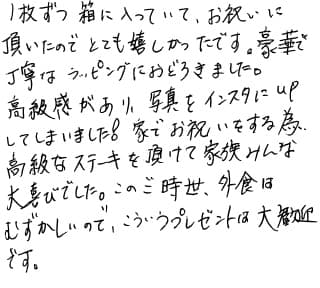 1枚ずつ箱に入っていて、お祝いに
頂いたのでとても嬉しかったです。豪華で
丁寧なラッピングにおどろきました。
高級感があり、写真をインスタにup
してしまいました!家でお祝いをする為、
高級なステーキを頂けて家族みんな
大喜びでした。このご時世、外食は
むずかしいので、こういうプレゼントは大歓迎
です。